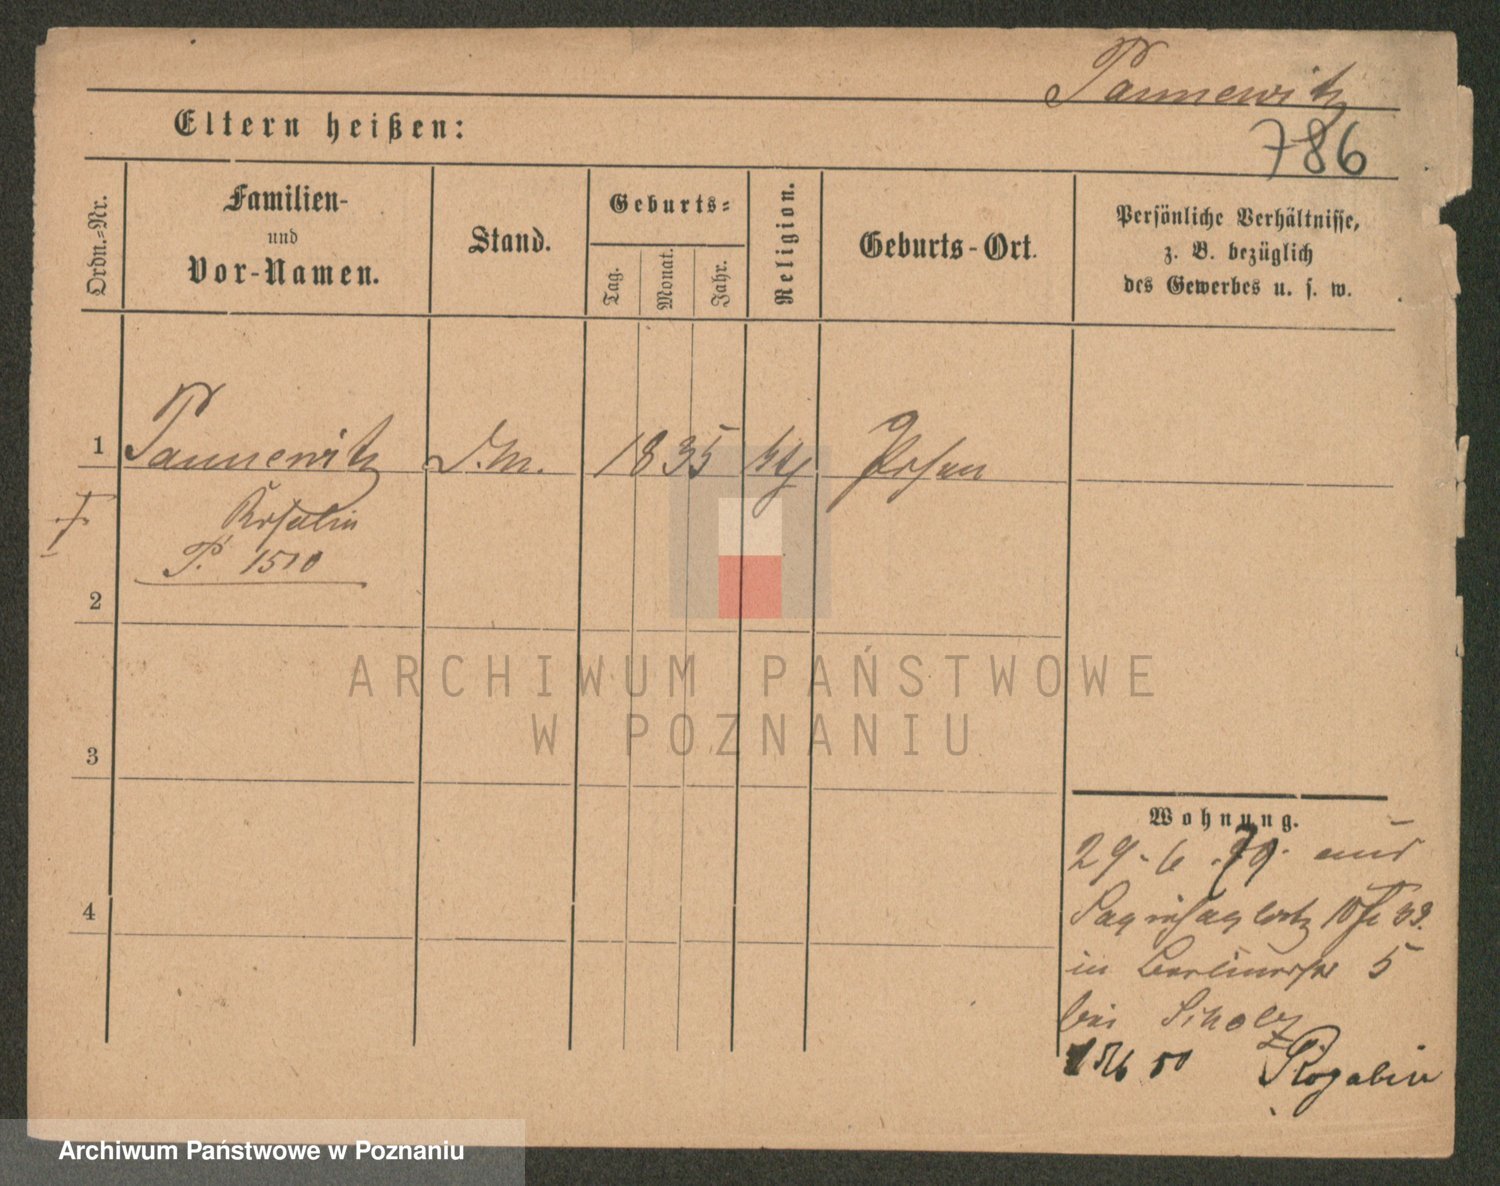 Pannewitz
Eltern heißen:
786
Ordn.-Nr.
Familien-
und
Vor-Namen.
Stand.
Geburts-
Tag.
Monat.
Jahr.
Religion.
Geburts-Ort.
Persönliche Verhältnisse,
z. B. bezüglich
des Gewerbes u. s. w.
1 Pannewitz D.M. 1835 kth Posen
Rosalie
P. 1510
2
3
4
Wohnung.
29. 6. 79. aus
in Berlinerstr 5
bei Scholz
50
ARCHIWUM PAŃSTWOWE
W POZNANIU
Archiwum Państwowe w Poznaniu